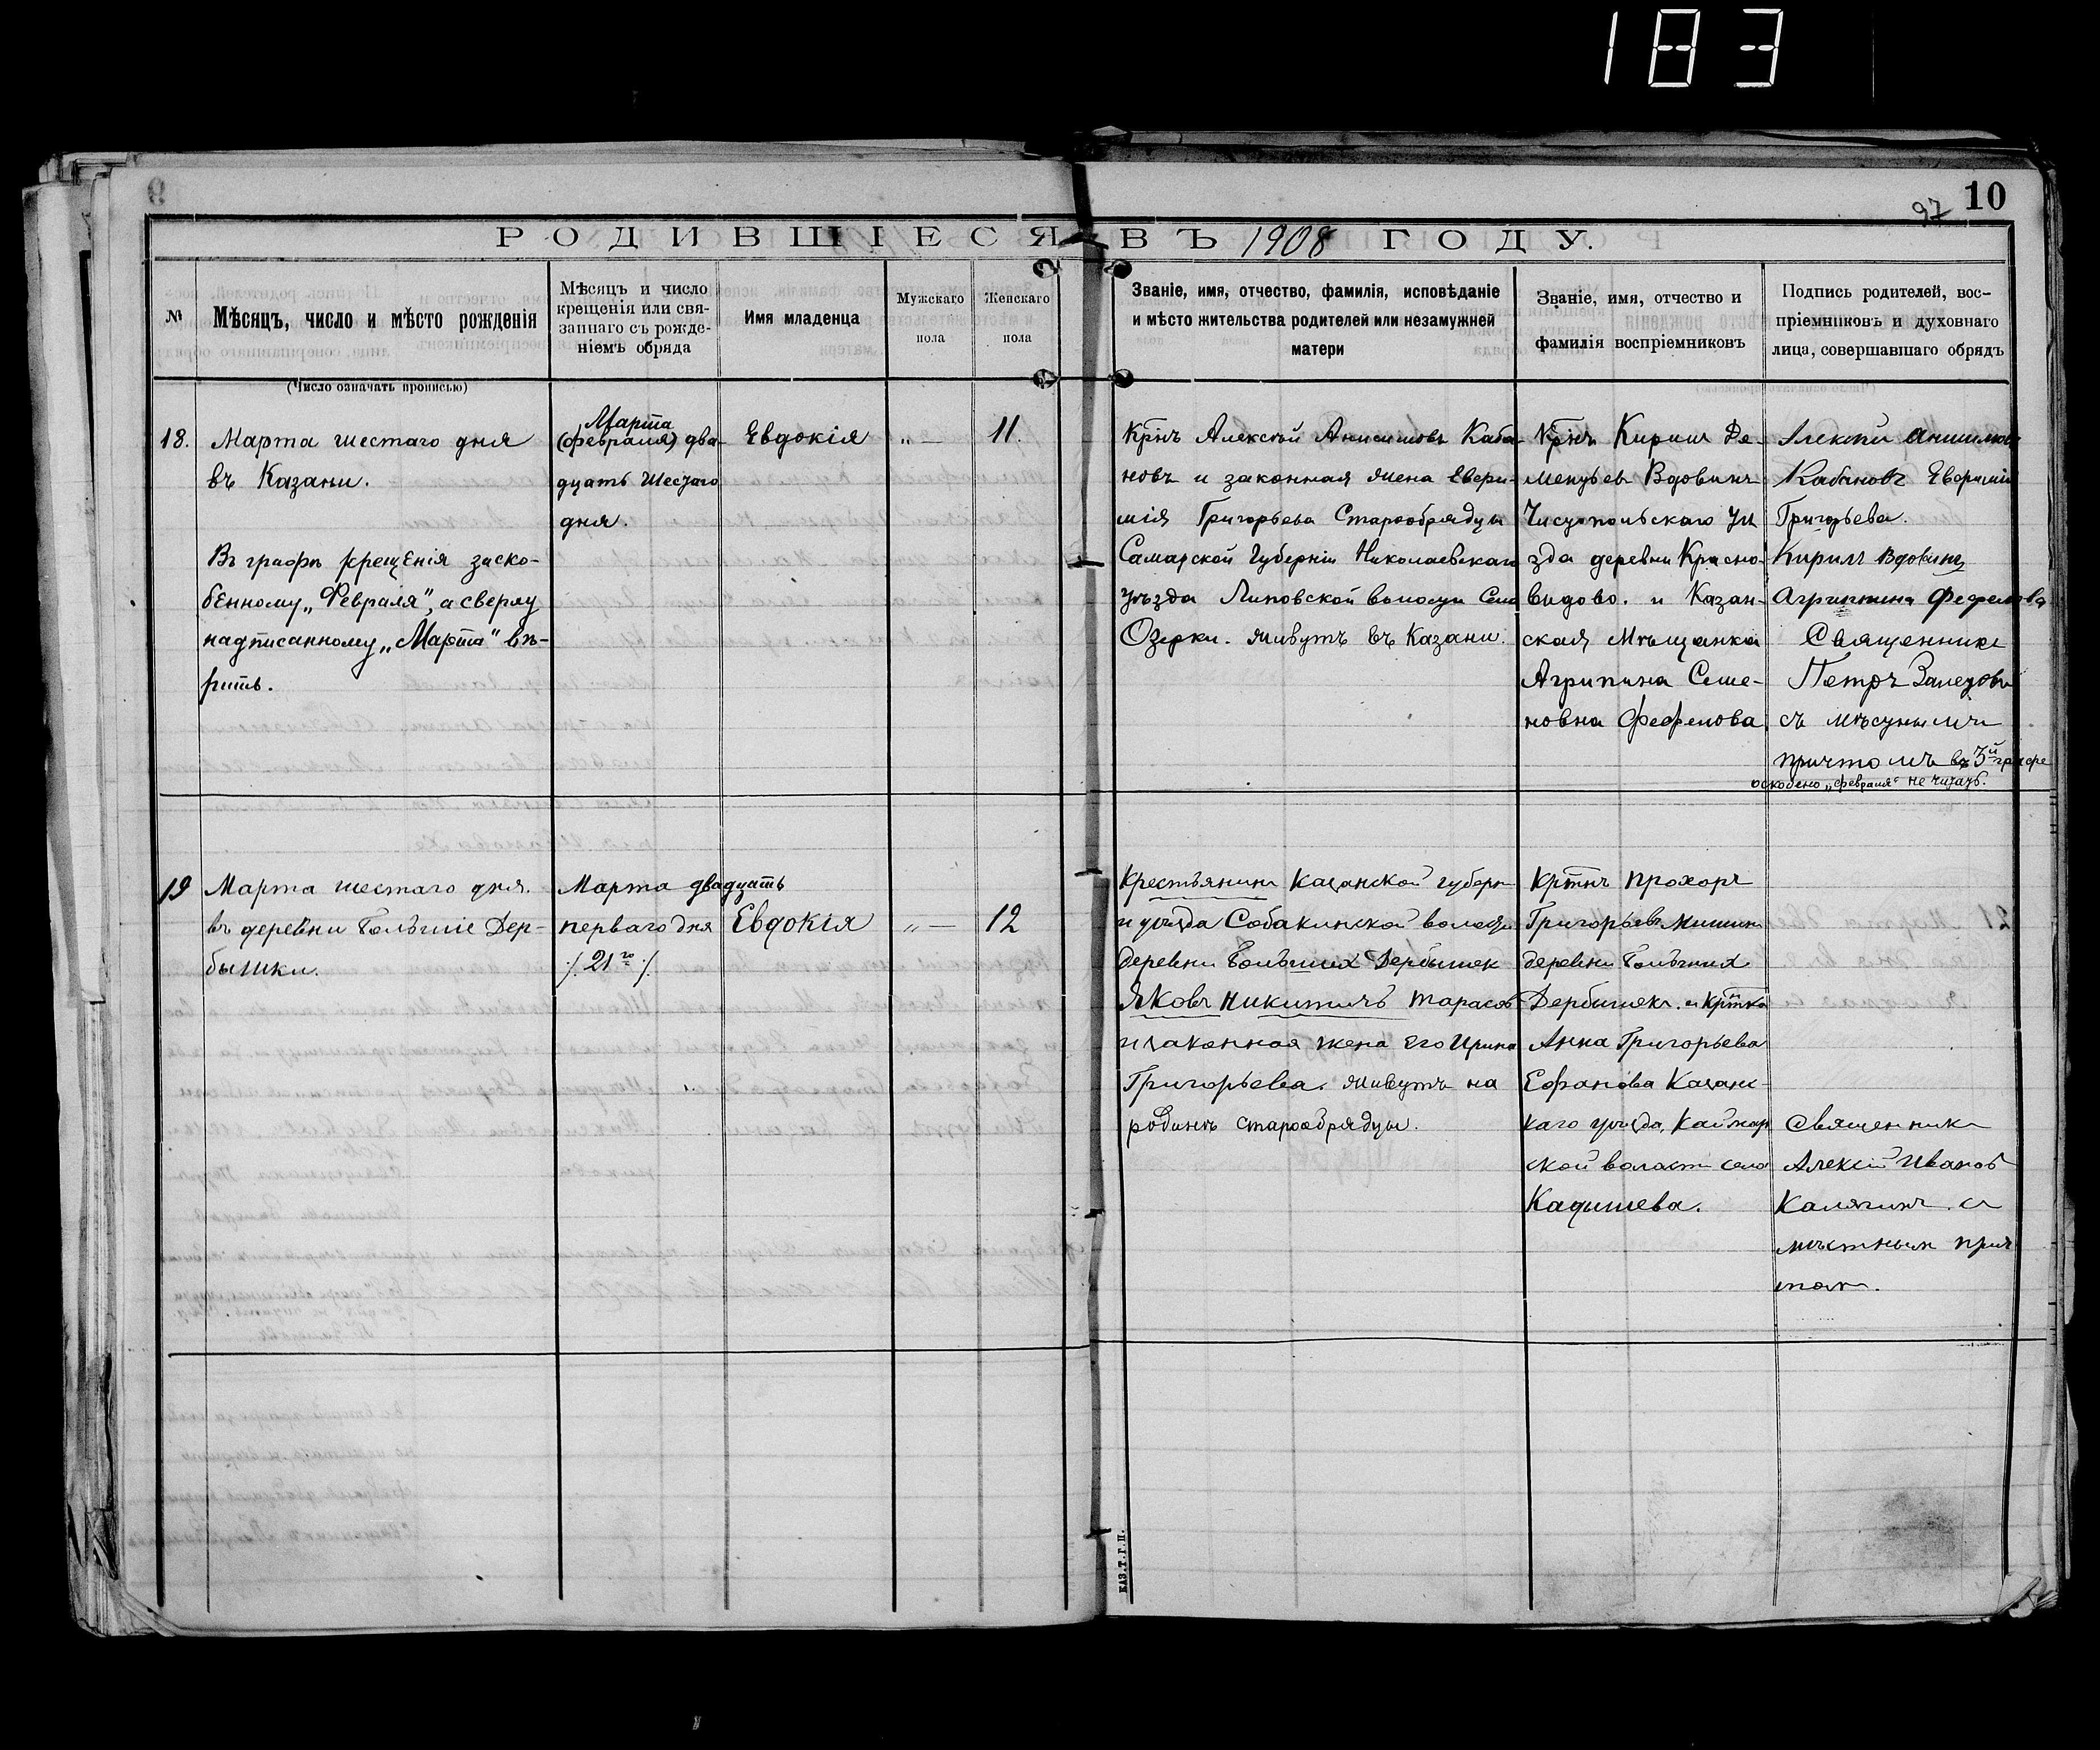 183
10
97
РОДИВШІЕСЯ ВЪ 1908 ГОДУ.
№
Мѣсяцъ, число и мѣсто рожденія
(Число означать прописью)
Мѣсяцъ и число
крещенія или свя-
заннаго съ рожде-
ніемъ обряда
Имя младенца
Мужскаго
пола
Женскаго
пола
Званіе, имя, отчество, фамилія, исповѣданіе
и мѣсто жительства родителей или незамужней
матери
Званіе, имя, отчество и
фамилія воспріемниковъ
Подпись родителей, вос-
пріемниковъ и духовнаго
лица, совершавшаго обрядъ
18.
Марта шестаго дня
въ Казани.
Въ графѣ крещенія заско-
бенному „Февраля", а сверху
надписанному „Марта" вѣ-
рить.
Марта
(февраля) два-
дцать шестаго
дня.
Евдокія
„ —
11.
Крінъ Алексѣй Анисимовъ Каба-
новъ и законная жена Еври-
мія Григорьева Старообрядцы
Самарской Губерніи Николаевскаго
уѣзда Липовской волости Села
Озерки. живутъ въ Казани.
Крінъ Кирилъ Де-
ментьевъ Вдовинъ
Чистопольскаго уѣ
зда деревни Красно-
видово. и Казан-
ская Мѣщанка
Агрипина Семе-
новна Фефелова
Алексѣй Анисимов
Кабановъ Евримія
Григорьева.
Кирилъ Вдовинъ
Агрипина Фефелова
Священникъ
Петръ Залетовъ
съ мѣстнымъ
причтомъ въ 3й графе
оскобено „февраля" не читать.
19
Марта шестаго дня.
въ деревни Большіе Дер-
бышки.
Марта двадцать
перваго дня
/ 21го /
Евдокія
„ —
12
Крестьянинъ Казанской губерн
и уѣзда Собакинской волости
деревни Большихъ Дербышек
Яковъ Никитичъ Тарасов
и законная жена его Ирина
Григорьева. живутъ на
родинѣ старообрядцы.
Кртнъ Прохоръ
Григорьевъ Мишин
деревни Большихъ
Дербышекъ. и Кртка
Анна Григорьева
Ефанова Казанс-
каго уѣзда, Каймар
ской воласти села
Кадышева.
Священникъ
Алексѣй Иванов
Калягинъ. съ
мѣстным прич
том.
КАЗ.Т.Г.П.